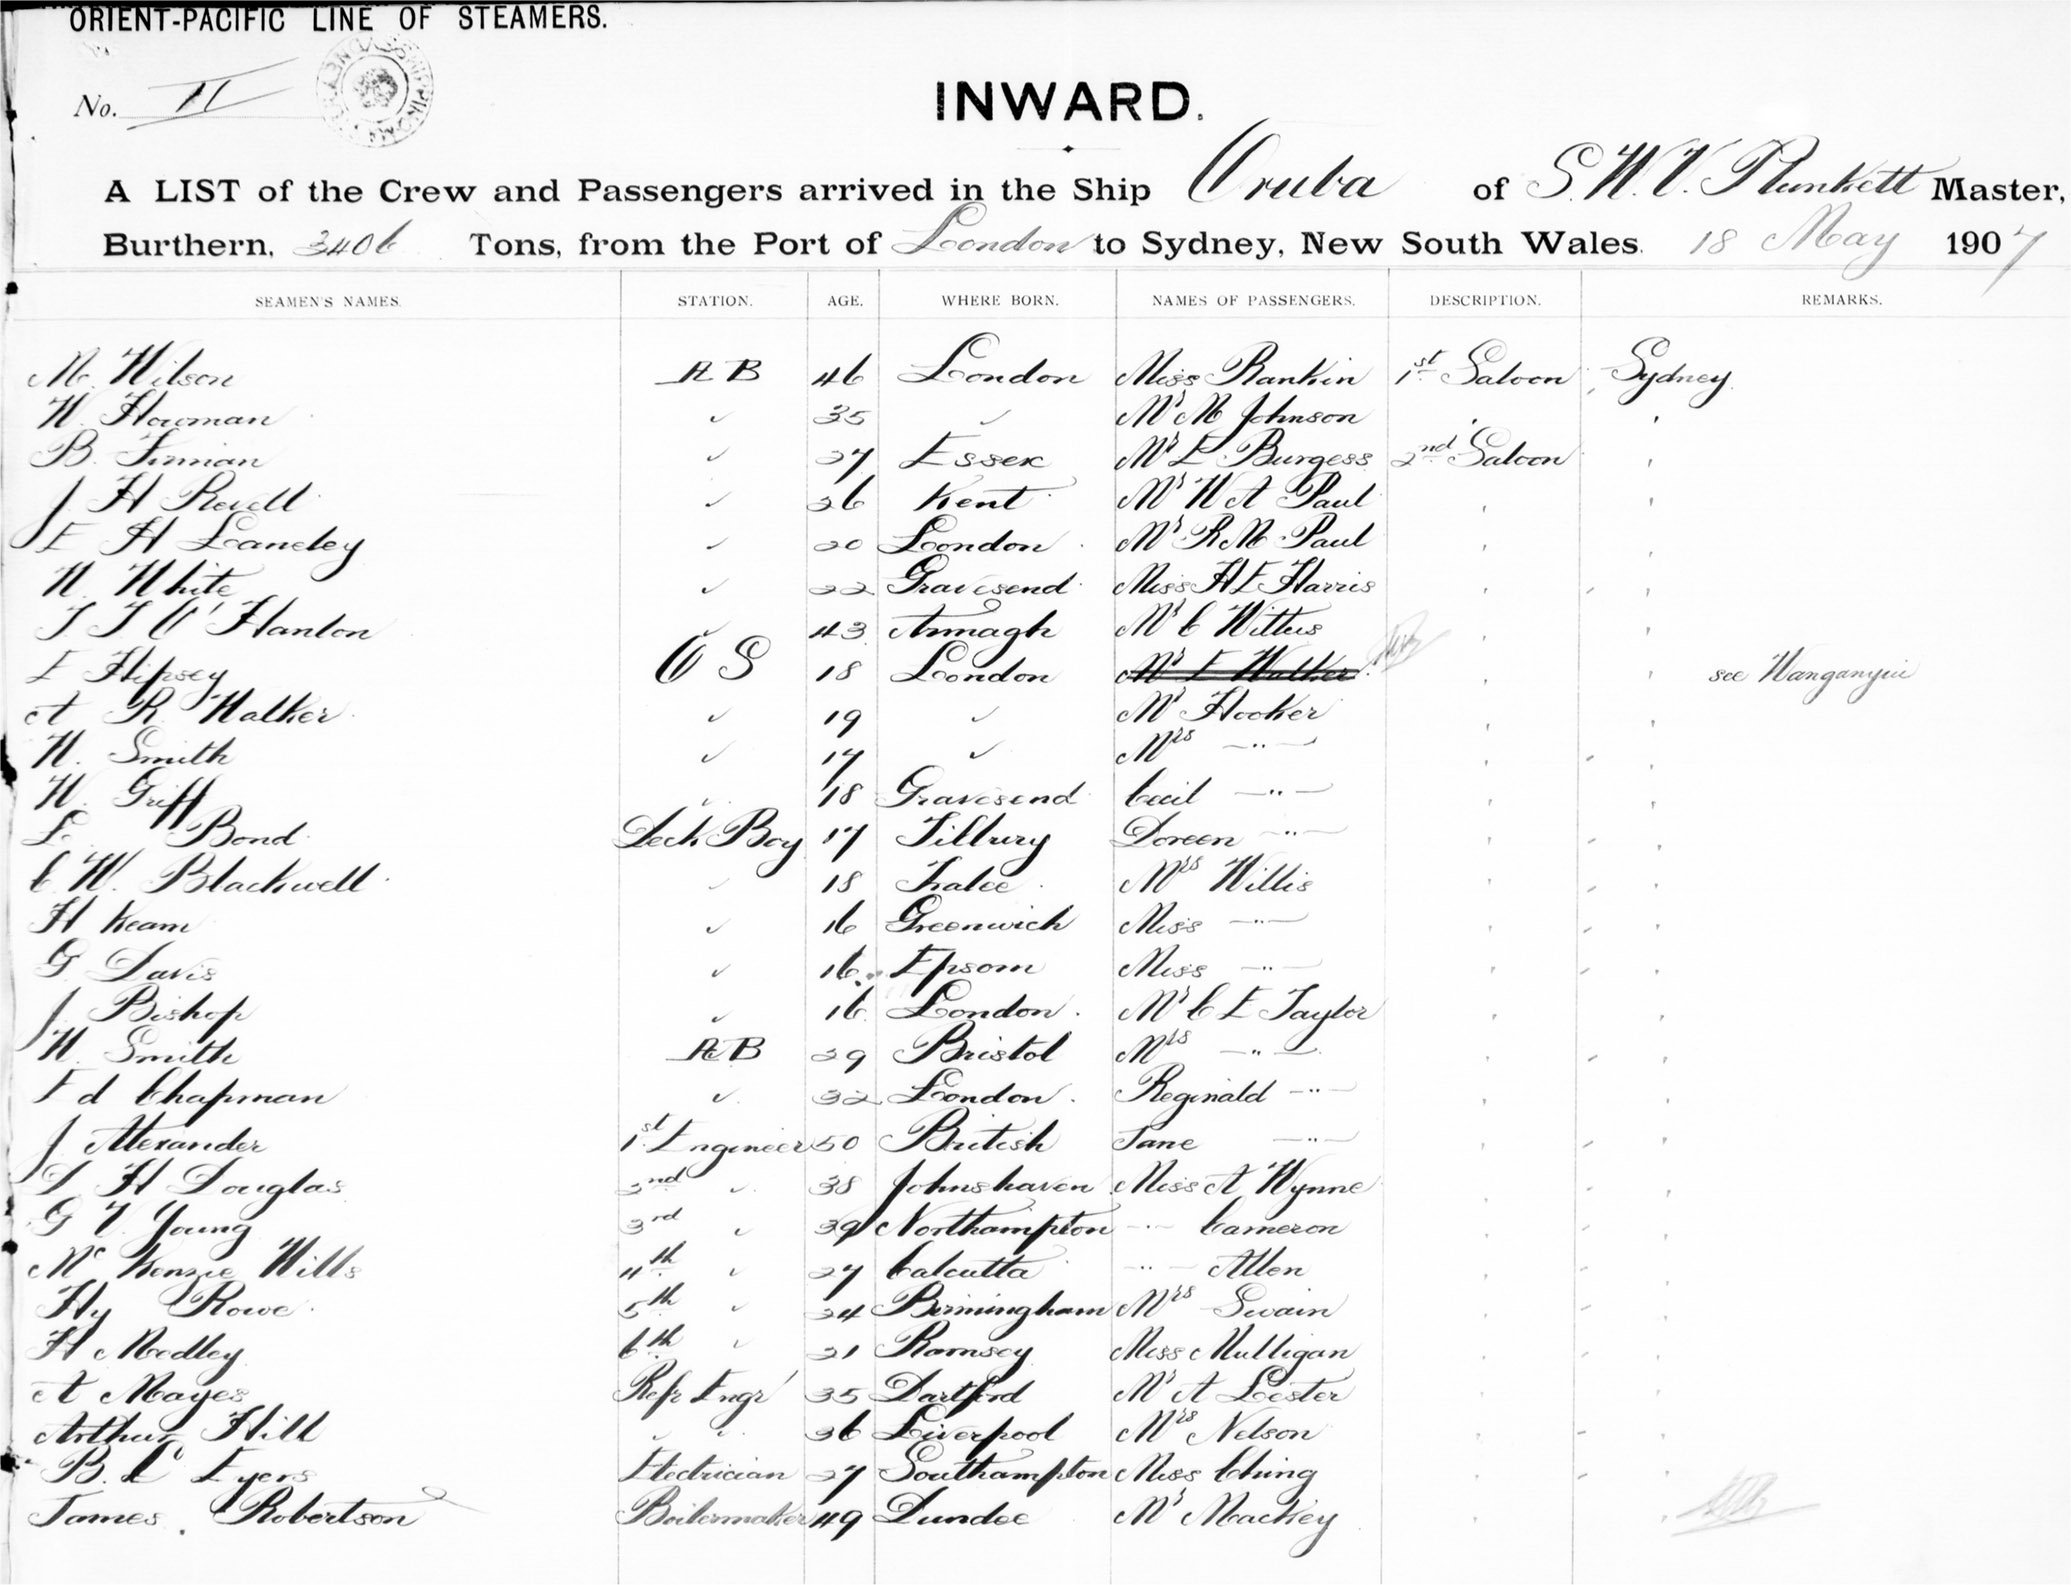 ORIENT-PACIFIC LINE OF STEAMERS.
No. II
INWARD.
A LIST of the Crew and Passengers arrived in the Ship Oruba of S. W. V. Plunkett Master,
Burthern, 3406 Tons, from the Port of London to Sydney, New South Wales. 18 May 1907
SEAMEN'S NAMES. STATION. AGE. WHERE BORN. NAMES OF PASSENGERS. DESCRIPTION. REMARKS.
M. Wilson AB 46 London Miss Rankin 1st Saloon Sydney
W. Howman ✓ 35 ✓ Mr M Johnson
B. Firman ✓ 27 Essex Mr E Burgess 2nd Saloon
J H Revell ✓ 26 Kent Mr W A Paul
E H Langley ✓ 20 London Mr R M Paul
W. White ✓ 22 Gravesend Miss H E Harris
J. J O'Hanlon ✓ 43 Armagh Mr C Wittus
E Hipsey O S 18 London Mr E Walker see Wanganyui
A R Walker ✓ 19 ✓ Mr Hooker
W. Smith ✓ 17 ✓ Mrs —"—
W. Griff ✓ 18 Gravesend Cecil —"—
L Bond Deck Boy 17 Tilbury Doreen —"—
C. W. Blackwell ✓ 18 Tralee Mrs Willis
H Keam ✓ 16 Greenwich Miss —"—
G Davis ✓ 16 Epsom Miss —"—
J Bishop ✓ 16 London Mr C E Taylor
W. Smith AB 29 Bristol Mrs —"—
F d Chapman ✓ 32 London Reginald —"—
J Alexander 1st Engineer 50 British Jane —"—
D H Douglas 2nd ✓ 38 Johnshaven Miss A Wynne
G V Young 3rd ✓ 39 Northampton —"— Cameron
Mc Kenzie Wills 4th ✓ 27 Calcutta —"— Allen
Hy Rowe 5th ✓ 24 Birmingham Mrs Swain
H Medley 6th ✓ 21 Ramsey Miss Mulligan
A Mayes Refr Engr 35 Dartford Mr A Lester
Arthur Hill ✓ ✓ 36 Liverpool Mrs Nelson
B. C Eyers Electrician 27 Southampton Miss Ching
James Robertson Boilermaker 49 Dundee Mr Mackey